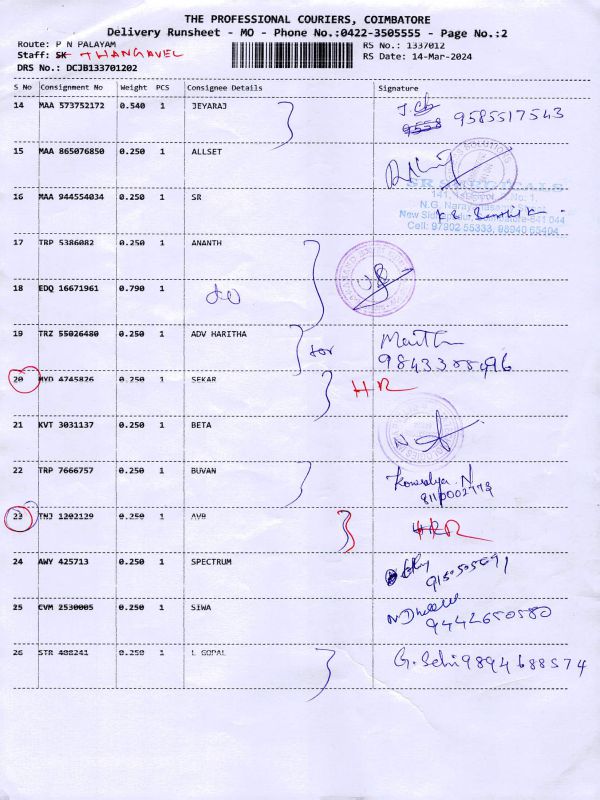 THE PROFESSIONAL COURIERS, COIMBATORE
Delivery Runsheet - MO - Phone No.:0422-3505555 - Page No.:2
Route: P N PALAYAM
RS No.: 1337012
Staff: SK THANGAVEL
RS Date: 14-Mar-2024
DRS No.: DCJB133701202
S No Consignment No Weight PCS Consignee Details Signature
14 MAA 573752172 0.540 1 JEYARAJ
9558 9585517543
15 MAA 865076850 0.250 1 ALLSET
16 MAA 944554034 0.250 1 SR
SR SURGICALS
Cell: 97902 55333, 98940 65404
17 TRP 5386082 0.250 1 ANANTH
18 EDQ 16671961 0.790 1
19 TRZ 55026480 0.250 1 ADV HARITHA for
20 MYD 4745826 0.250 1 SEKAR HR
21 KVT 3031137 0.250 1 BETA
22 TRP 7666757 0.250 1 BUVAN Kowsalya N
23 TNJ 1202129 0.250 1 AVB HR
24 AWY 425713 0.250 1 SPECTRUM
25 CVM 2530005 0.250 1 SIWA
9442650580
26 STR 408241 0.250 1 L GOPAL G. Selvi 9894688574